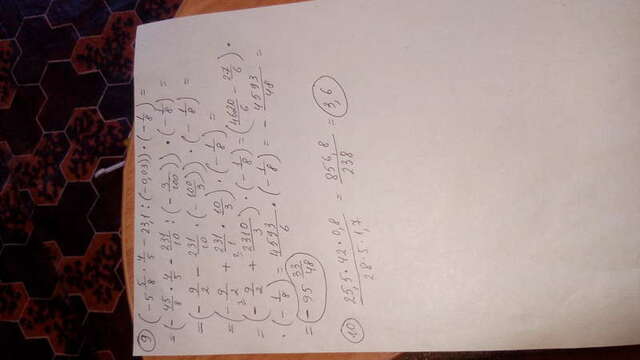 9) (-5 5/8 · 4/5 - 23,1 : (-0,03)) · (-1/8) =
= (-45/8 · 4/5 - 231/10 : (-3/100)) · (-1/8) =
= (-9/2 - 231/10 · (-100/3)) · (-1/8) =
= (-9/2 + 231/1 · 10/3) · (-1/8) =
= (-9/2 + 2310/3) · (-1/8) = (4620/6 - 27/6) ·
· (-1/8) = 4593/6 · (-1/8) = - 4593/48 =
= -95 33/48
10) 25,5 · 42 · 0,8 / 28 · 5 · 1,7 = 856,8 / 238 = 3,6